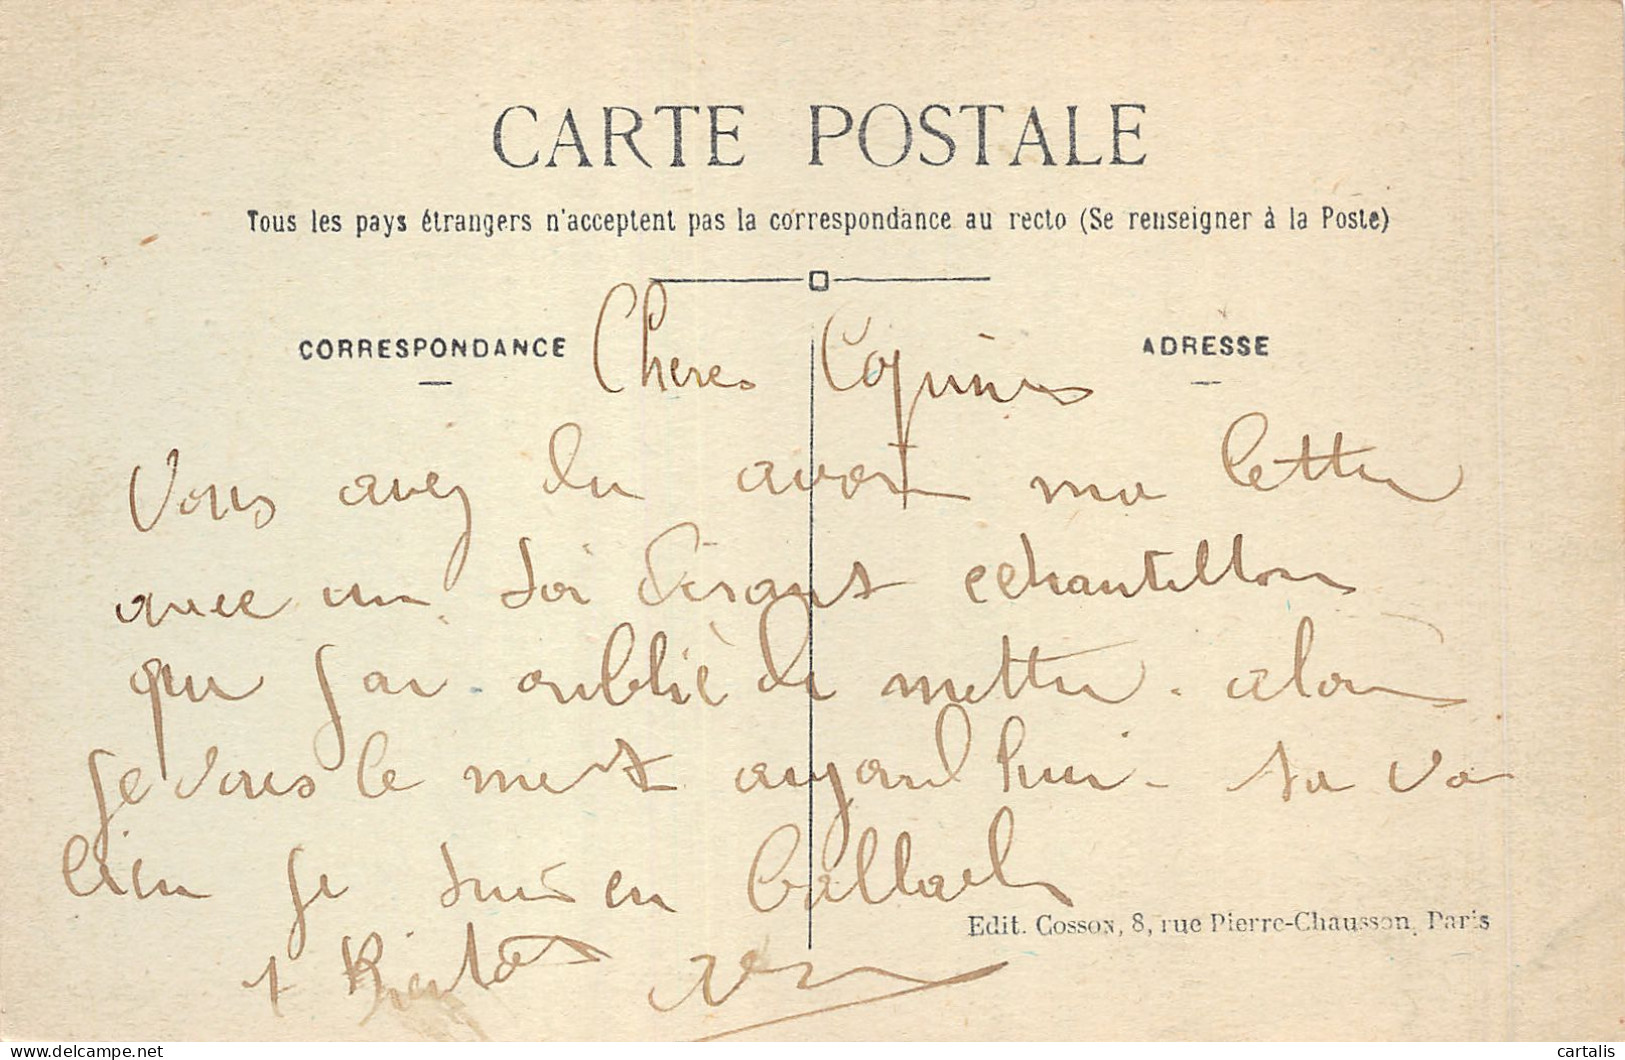 CARTE POSTALE
Tous les pays étrangers n'acceptent pas la correspondance au recto (Se renseigner à la Poste)
CORRESPONDANCE
ADRESSE
Cheres Copines
Vous avez du avoir ma lettre
avec un soi disant echantillon
que j'ai oublié de mettre. alors
je vous le mets aujourd'hui. Sa va
bien je suis en
Edit. Cosson, 8, rue Pierre-Chausson, Paris
a Bientot
cartalis
www.delcampe.net